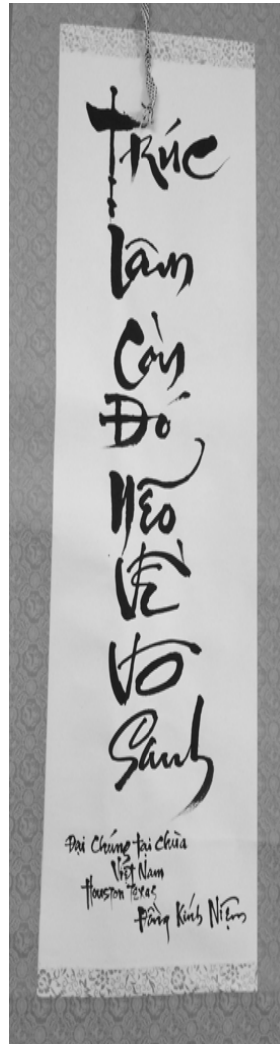 Trúc
Lâm
Còn
Đó
Nẽo
Về
Vô
Sanh
Đại Chúng tại chùa
Việt Nam
Houston Texas
Đồng Kính Niệm